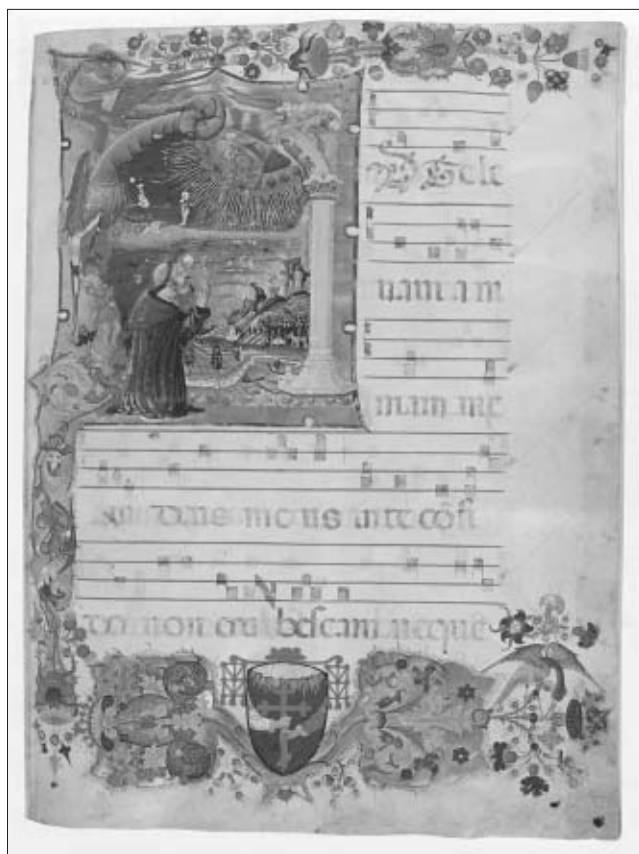 D te le
uam a m
mam me
am Deus meus in te cōfi
do non erubescam neque